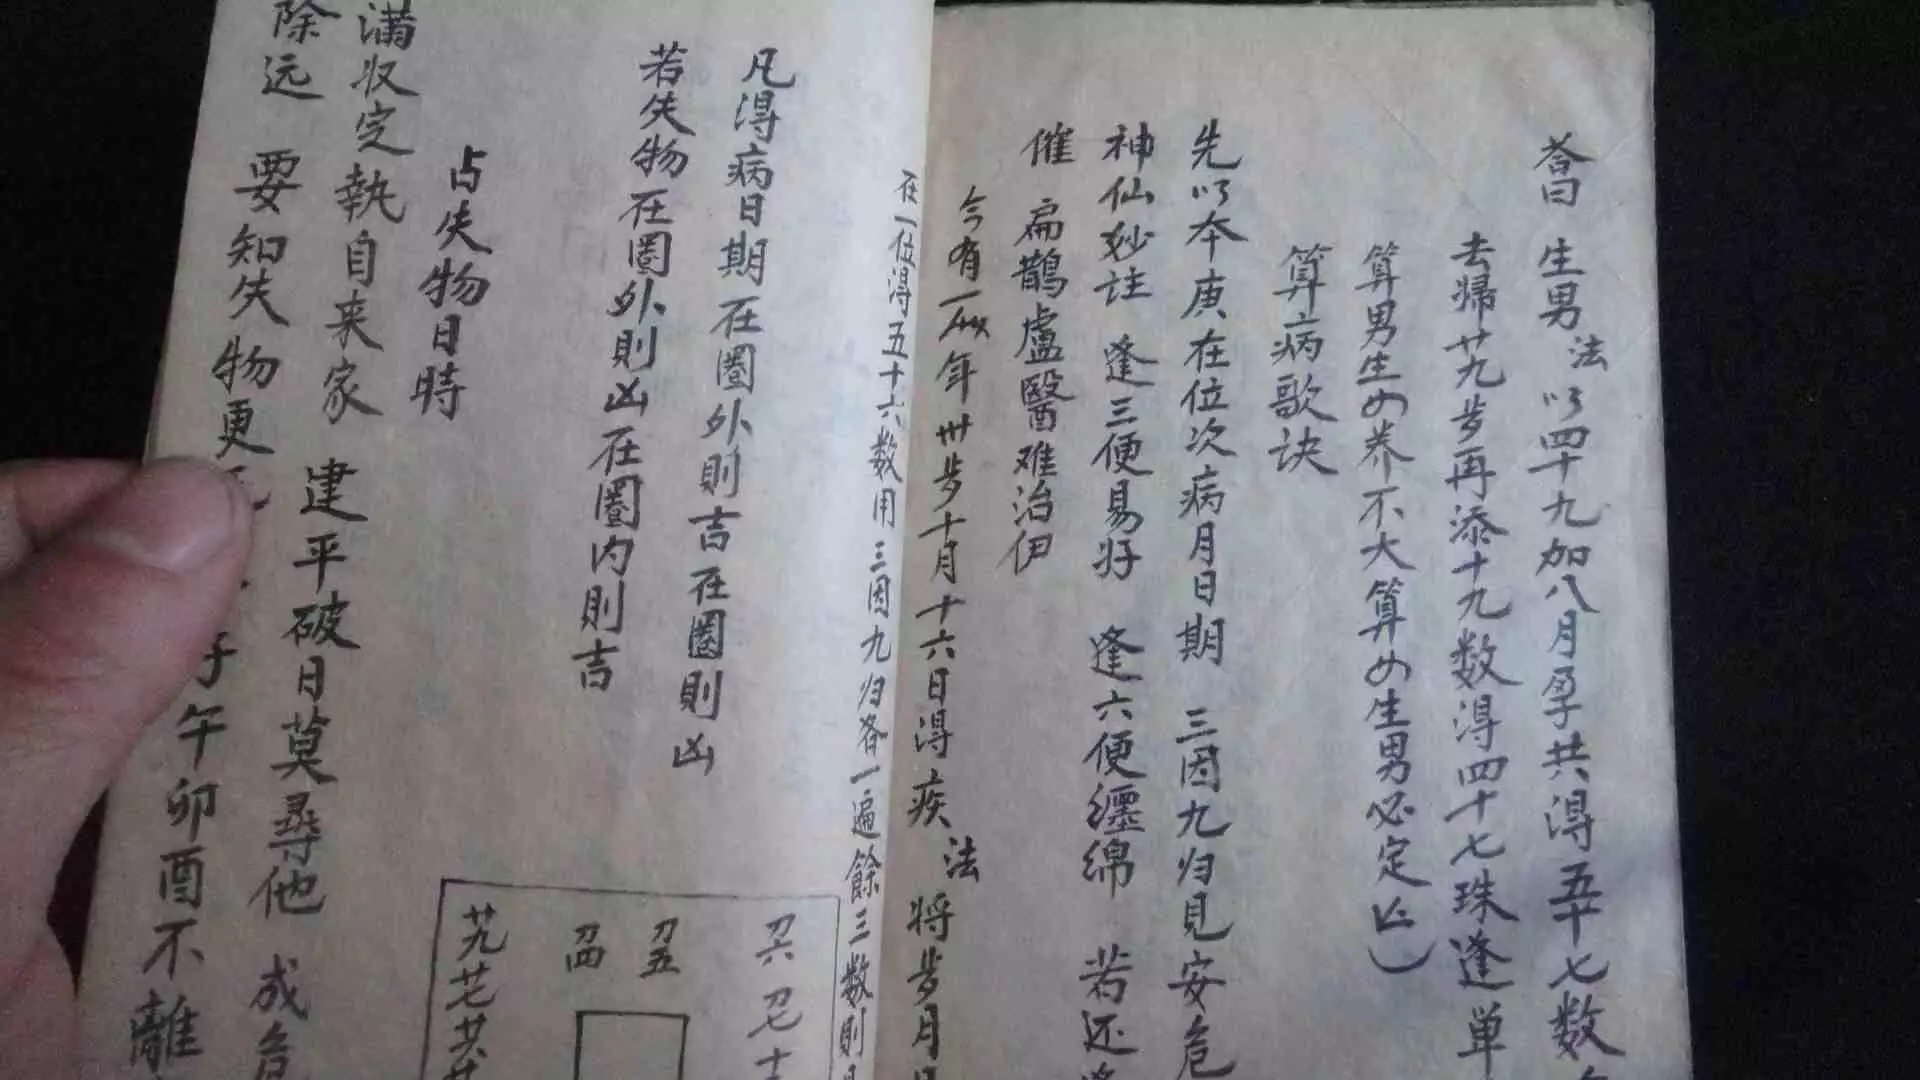 荅曰 生男法 以四十九加八月孕共得五十七数
去帰廾九岁再添十九数得四十七珠逢单
算男生女养不大算女生男必定
算病歌诀
先以本庚在位次病月日期 三因九归見安危
神仙妙註 逢三便易好 逢六便纏绵 若还
催 扁鵲盧醫难治伊
今有一 年卅岁十月十六日得疾 法 将岁月
在一位得五十六数用三因九归各一遍餘三数則
凡得病日期在圈外則吉在圈則凶
若失物在圈外則凶在圈内則吉
刀六 刀七
刀五
刀四
廾九 廾七 廾
占失物日時
满收定執自来家 建平破日莫尋他 成危
除远 要知失物更 子午卯酉不離